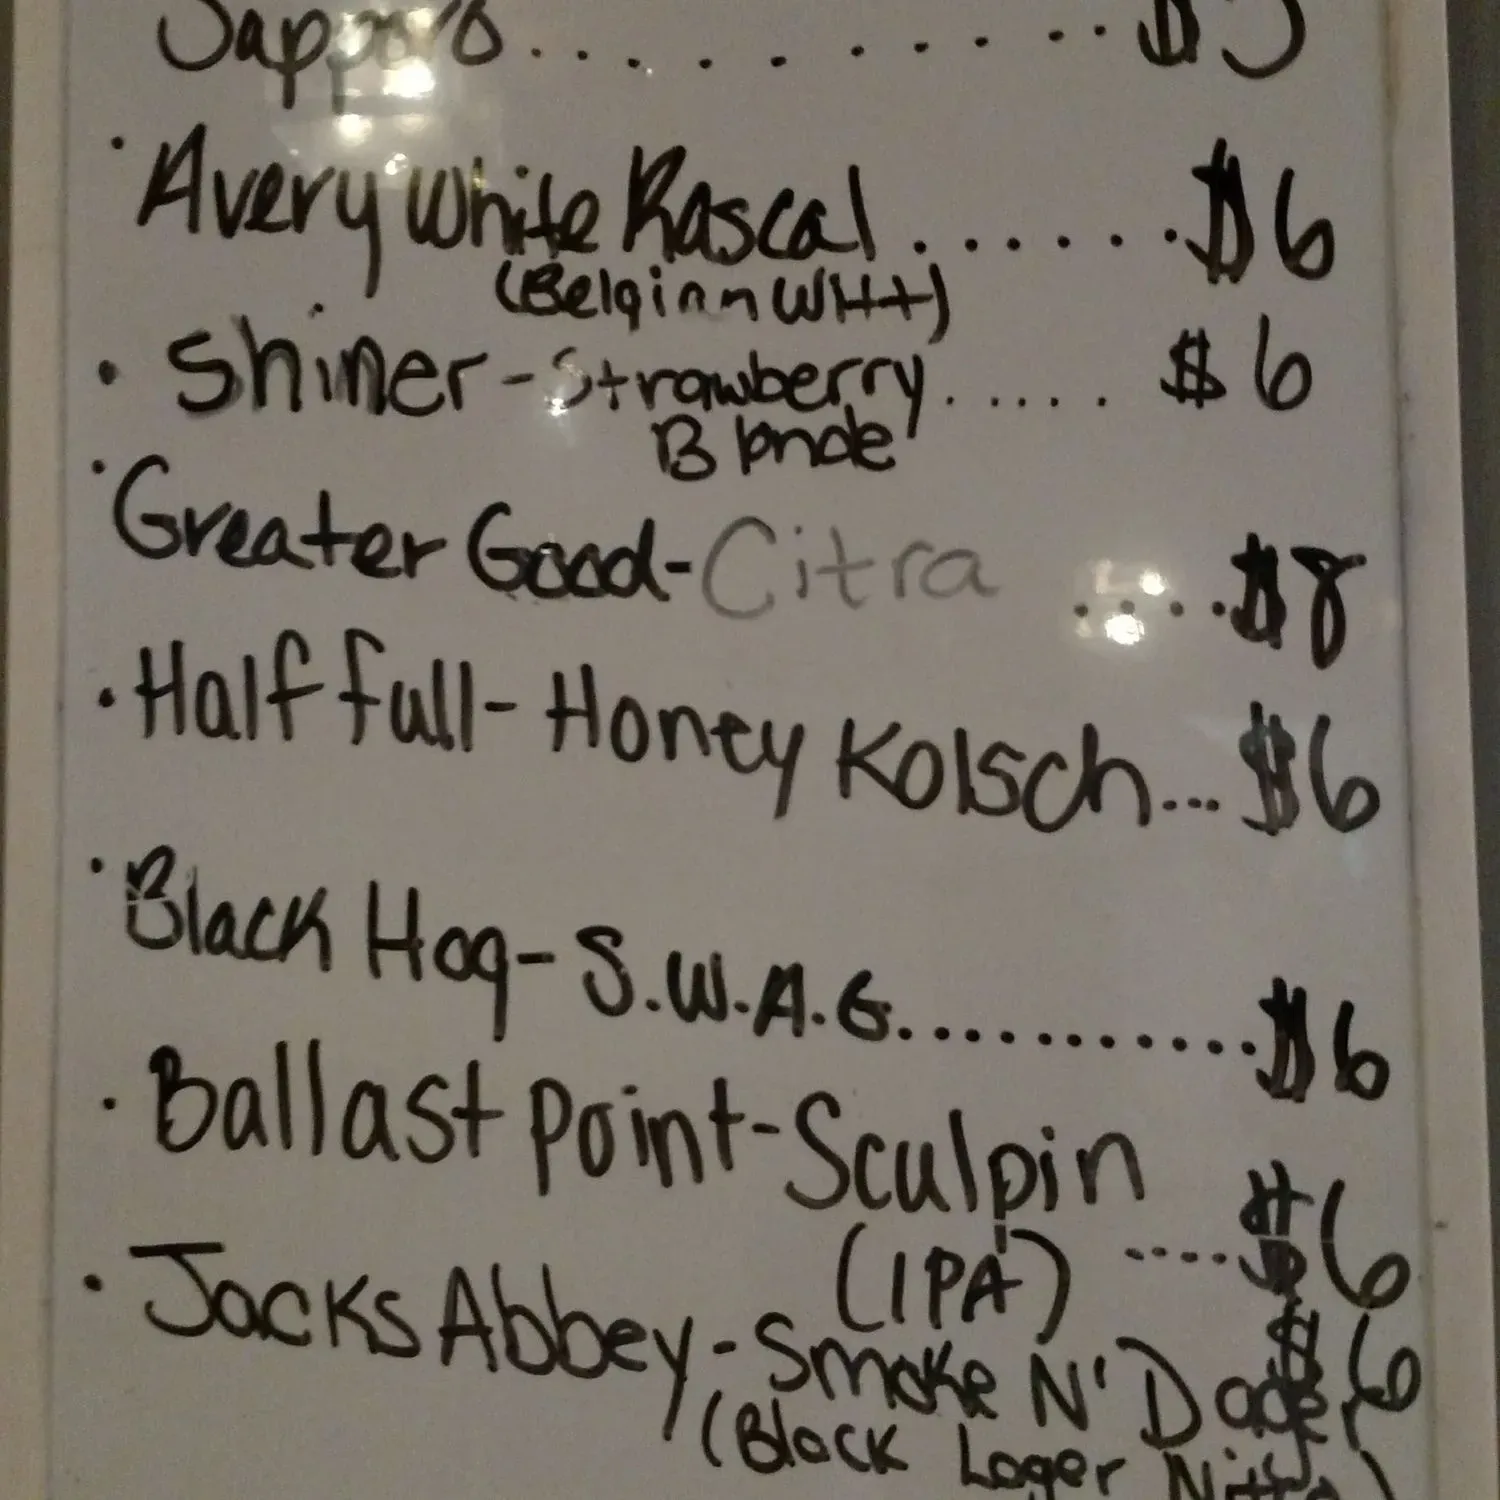 Sapporo.......... $5
· Avery White Rascal.......$6
(Belgian WHit)
· Shiner - Strawberry..... $6
Blonde
· Greater Good - Citra ....$8
· Half full - Honey Kolsch...$6
· Black Hog - S.W.A.G............$6
· Ballast Point - Sculpin
(IPA) ....$6
· Jacks Abbey - Smoke N' Dagger $6
(Black Lager Nitro)